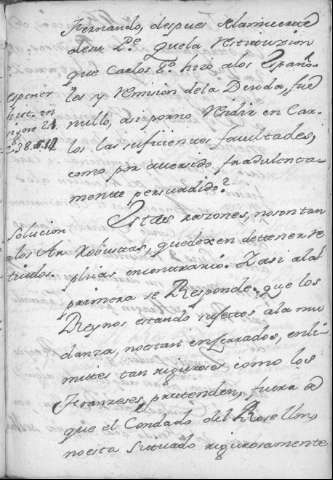 Fernando, despues de la muerte
de su P.e que la restitucion
que Carlos 8.o hizo a los Españo
les y remision de la Deuda, fue
nullo, asi por no residir en Car
los las suficientes facultades,
como por averlo fradulenta
mente persuadido?
Estas razones, no son tan
robustas, que dexen de tenerse
plus en contrario. I asi a la
primera se Responde, que los
Reynos estando sujetos a la mu
danza, no estan enserrados, en li
mites tan rigurosos, como los
Franzeses pretenden, fuera de
que el Condado del Rosellon,
no esta situado rigurosamente
Solucion
a los Ar